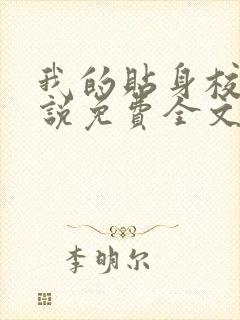 我的贴身校
說免費全文
李明尔